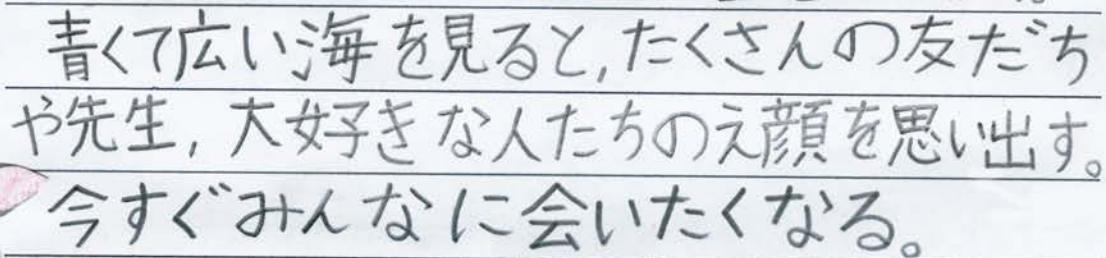 青くて広い海を見ると,たくさんの友だち
や先生,大好きな人たちのえ顔を思い出す。
今すぐみんなに会いたくなる。